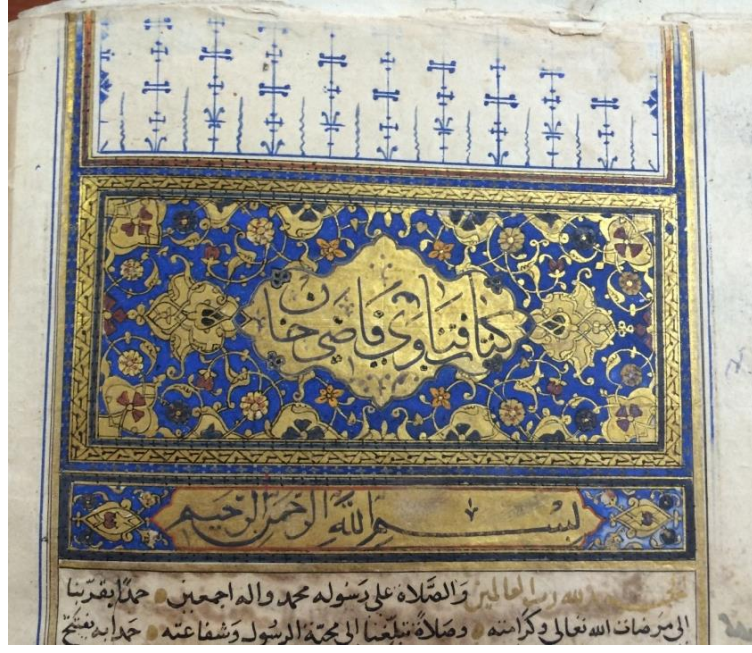 كتاب فتاوى قاضى خان
بسم الله الرحمن الرحيم
الحمد لله رب العالمين والصلاة على رسوله محمد واله اجمعين حمدا يقربنا
الى مرضات الله تعالى وكرامته وصلاة تبلغنا الى محبة الرسول وشفاعته حمدا به نفتتح